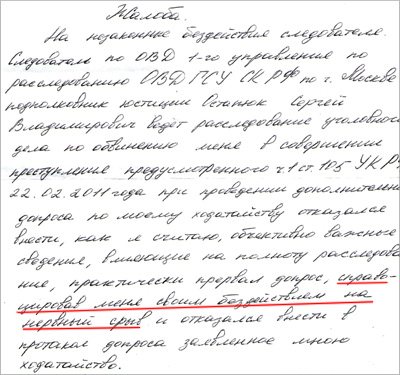 Жалоба.
На незаконные бездействия следователя.
Следователь по ОВД 1-го управления по
расследованию ОВД ГСУ СК РФ по г. Москве
подполковник юстиции Остапюк Сергей
Владимирович ведёт расследование уголовного
дела по обвинению меня в совершении
преступления предусмотренного ч.1 ст. 105 УК РФ
22.02.2011 года при проведении дополнительно
допроса по моему ходатайству отказался
внести, как я считаю, объективно важные
сведения, влияющие на полноту расследова
ние, практически прервал допрос, справо-
цировав меня своим бездействием на
нервный срыв и отказался внести в
протокол допроса заявленное мною
ходатайство.